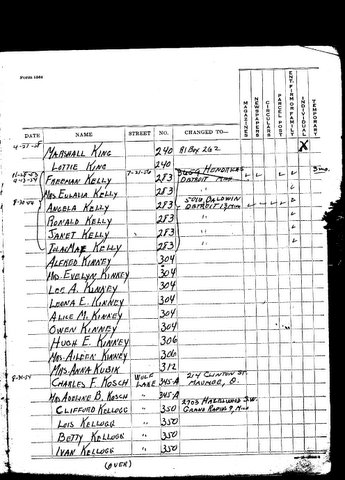 Form 1564
DATE NAME STREET NO. CHANGED TO— MAGAZINES NEWSPAPERS CIRCULARS PARCEL POST ENT. FIRM OR FAMILY INDIVIDUAL TEMPORARY
MARSHALL KING 240 81BY 262 X
LOTTIE KING 240
FREEMAN KELLY 283 HENDRICKS DETROIT 3 mo.
MRS EULALIA KELLY 283 "
ANGELA KELLY 283 5018 BALDWIN DETROIT 13 MICH
RONALD KELLY 283 "
JANET KELLY " 283 "
KELLY 283 "
ALFRED KINNEY 304
MRS. EVELYN KINNEY 304
LEE A. KINNEY 304
LEONA E. KINNEY 304
ALICE M. KINNEY 304
OWEN KINNEY 304
HUGH E. KINNEY 306
MRS. AILEEN KINNEY 306
MRS. ANNA KUBIK 312
CHARLES F. KOSCH WOLF LAKE 345-A 214 CLINTON ST. MAUMEE, O.
MRS ADELINE B. KOSCH " 345-A
CLIFFORD KELLOGG " 350 2903 S.W. GRAND RAPIDS 9, MICH
LOIS KELLOGG " 350
BETTY KELLOGG " 350
IVAN KELLOGG " 350
(OVER)